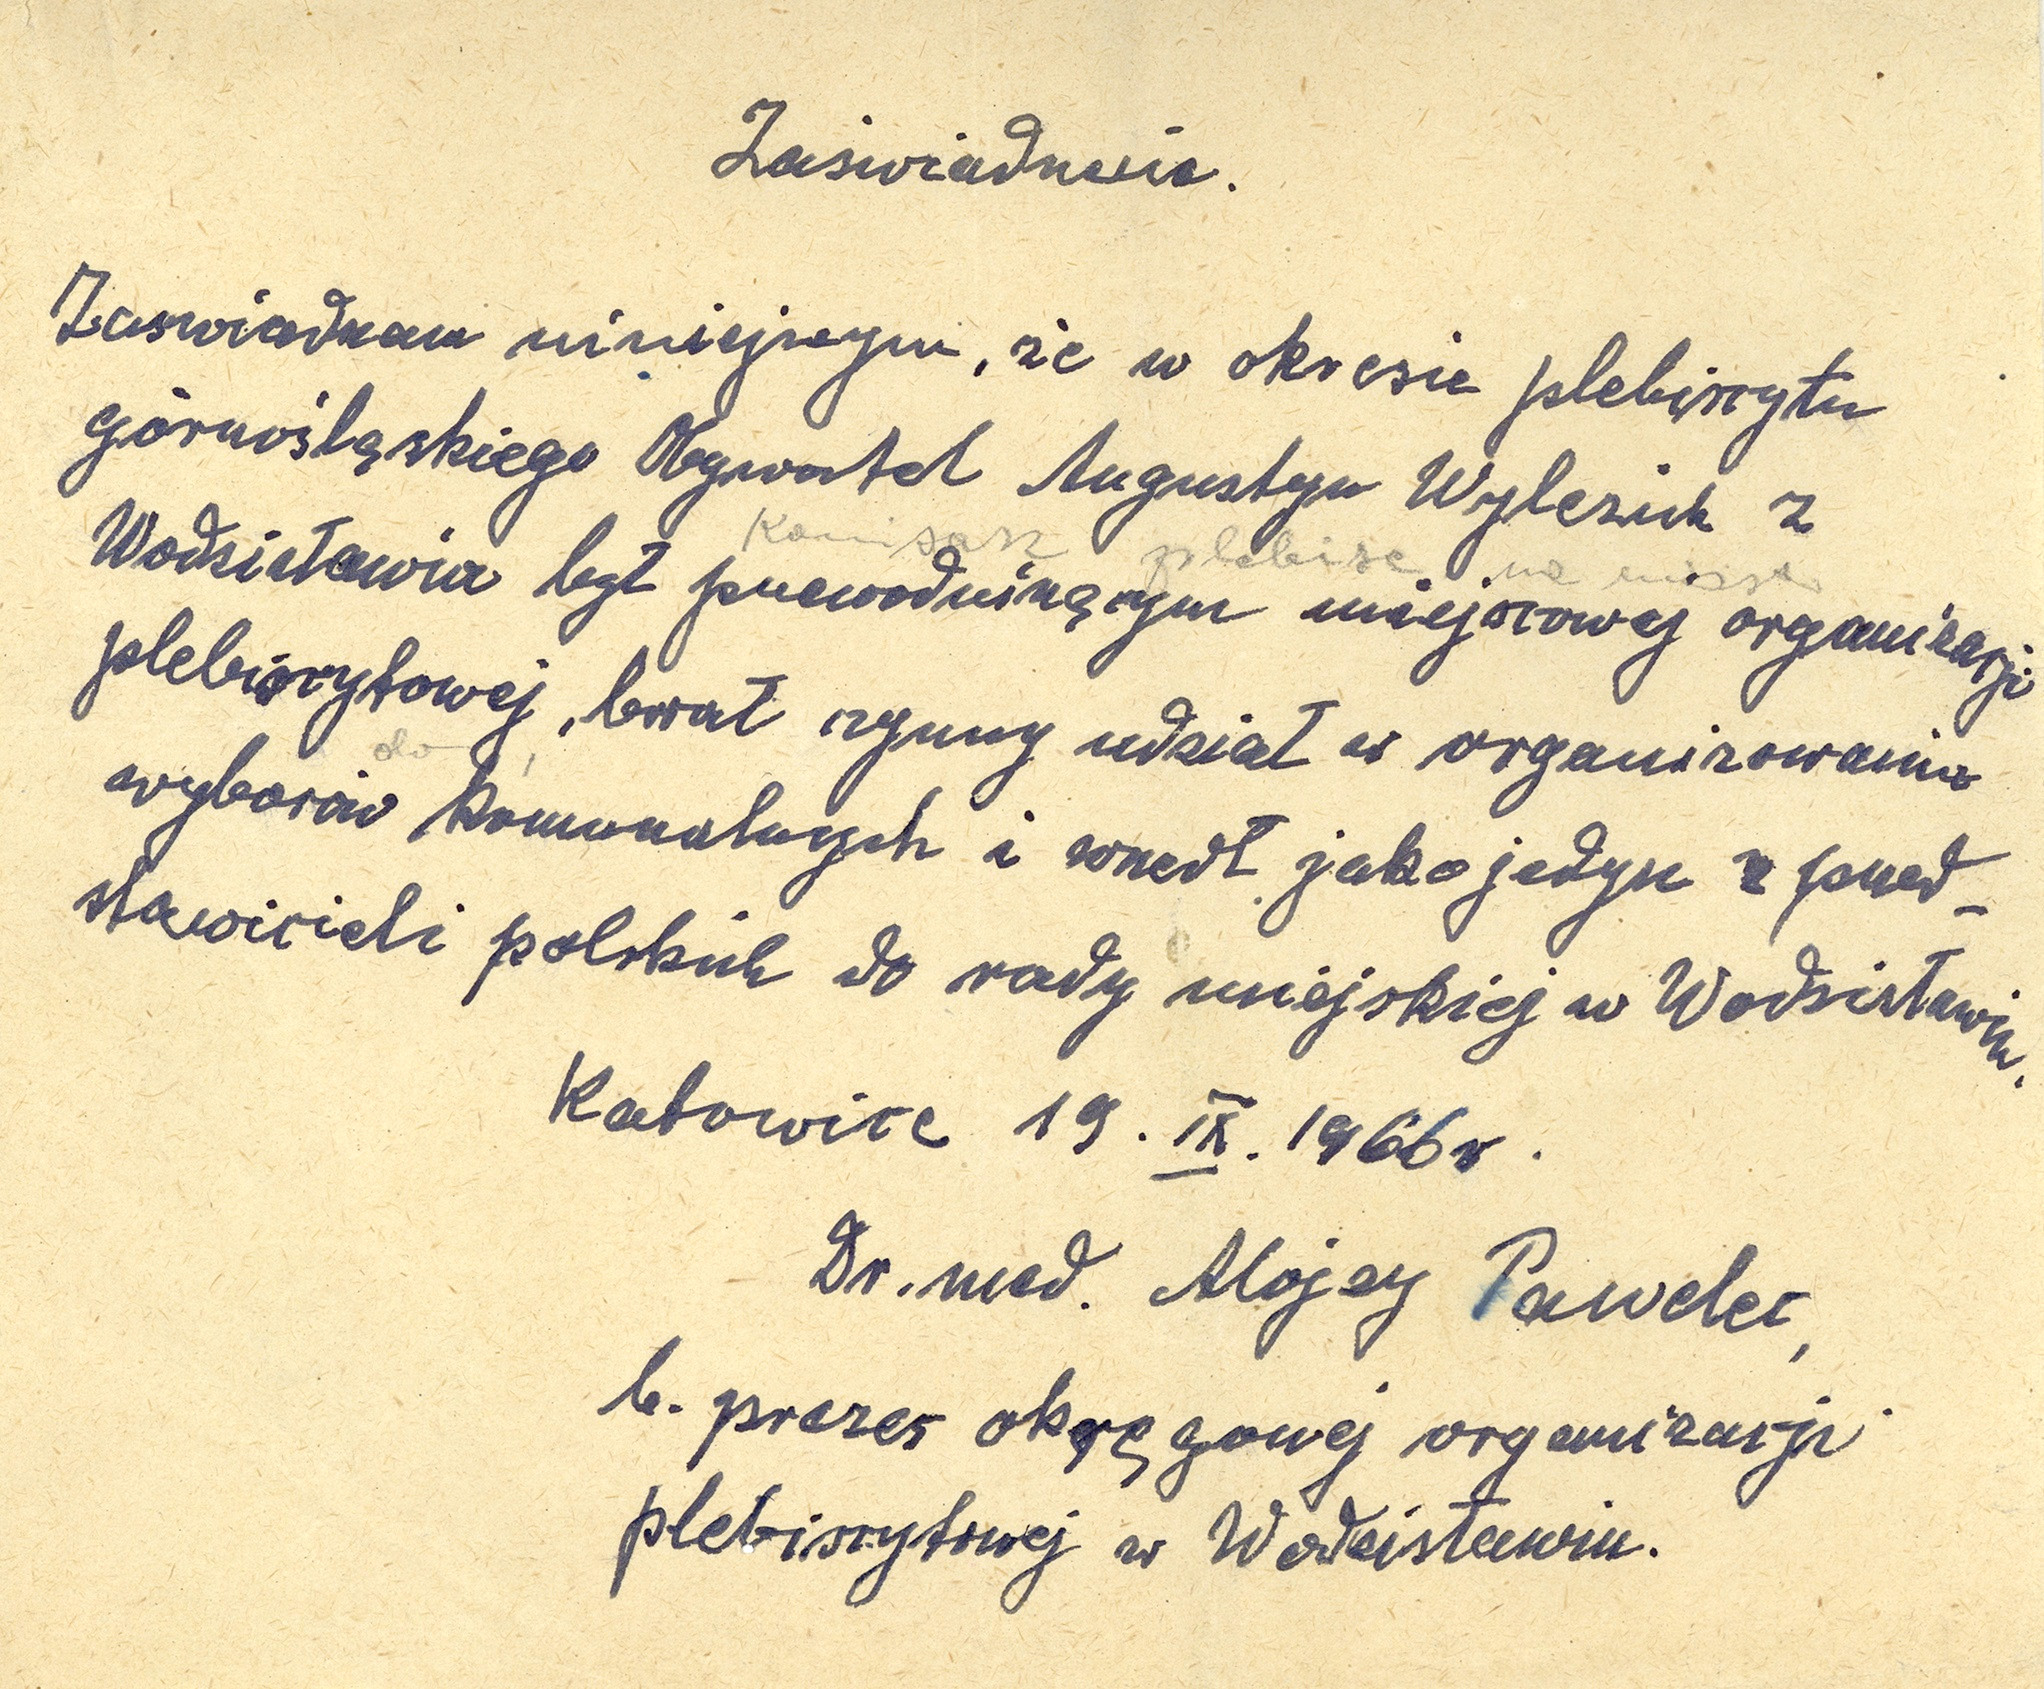 Zaświadczenie.
Zaświadczam niniejszym, że w okresie plebiscytu
górnośląskiego Obywatel Augustyn Wyleżich z
Komisarz plebisc na miasto
Wodzisławia był przewodniczącym miejscowej organizacji
plebiscytowej, brał czynny udział w organizowaniu
do
wyborów komunalnych i wszedł jako jedyn z przed-
stawicieli polskich do rady miejskiej w Wodzisławiu.
Katowice 19. IX. 1966 r.
Dr. med. Alojzy Pawelec,
b. prezes okręgowej organizacji
plebiscytowej w Wodzisławiu.